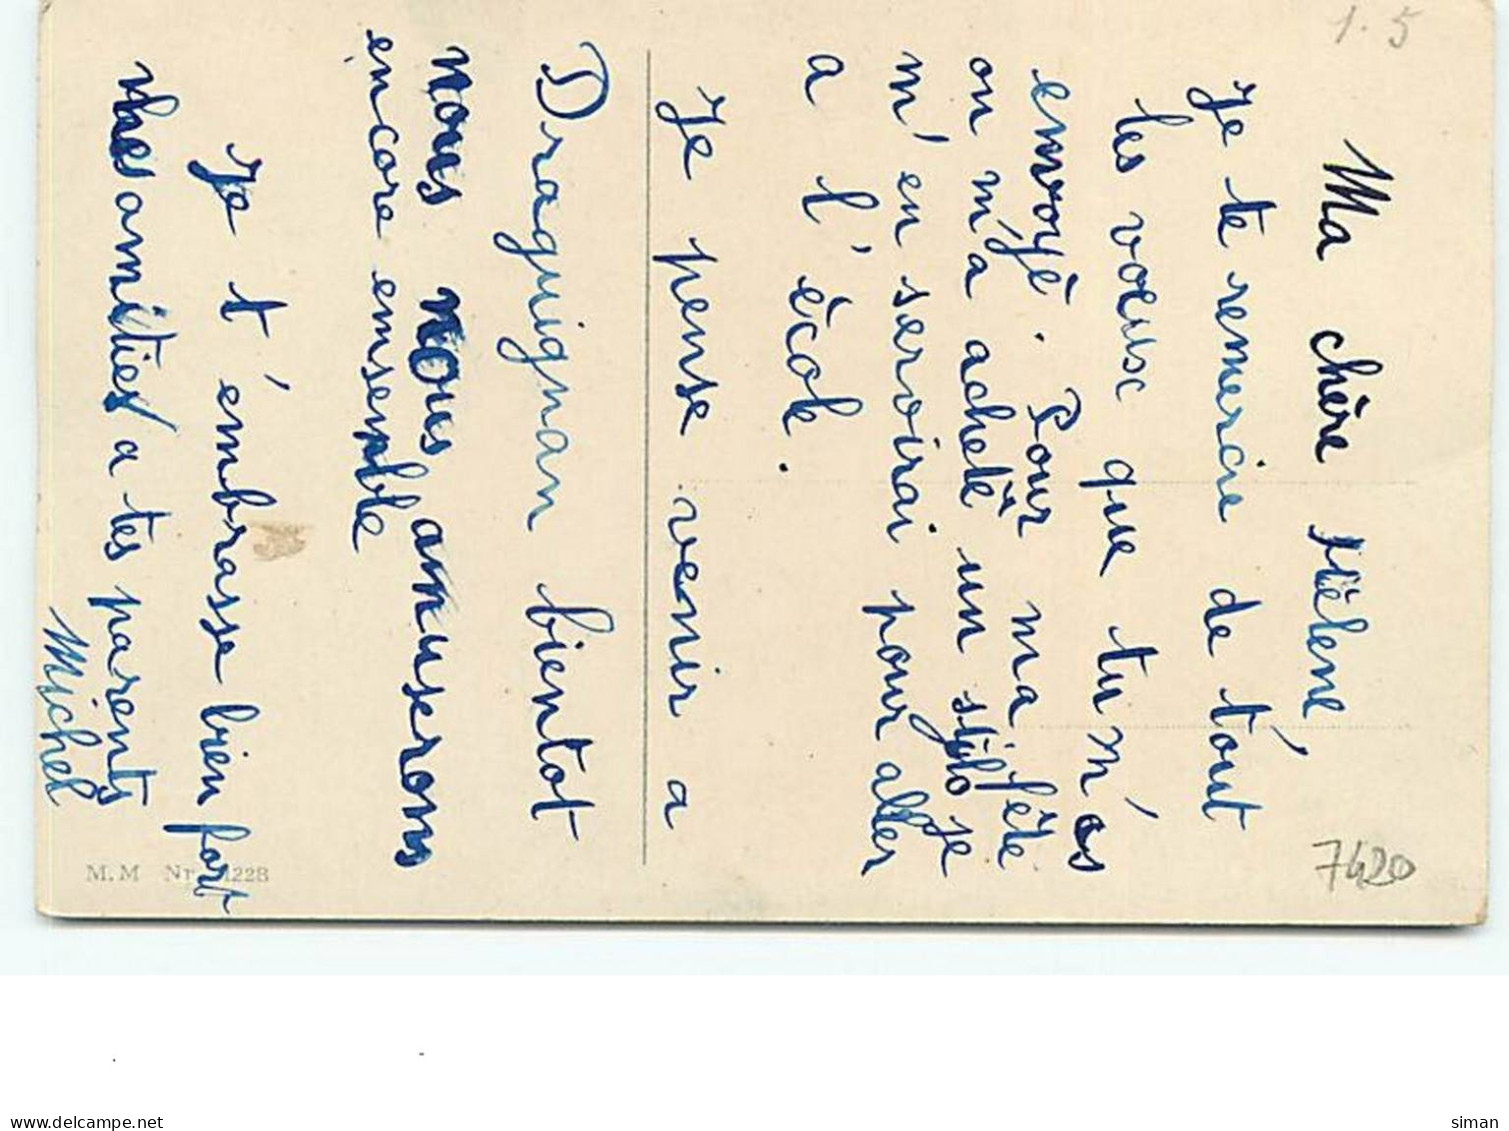 Ma chère Hélène
Je te remercie de tout
les voeux que tu m'as
envoyé. Pour ma fête
on m'a acheté un stylo je
m'en servirai pour aller
a l'école.
Je pense venir a
Draguignan bientot
nous nous amuserons
encore ensemble
Je t'embrasse bien fort
mes amitiés a tes parents
Michel
1.5
7420
M. M Nr. 1228
delcampe.net
siman